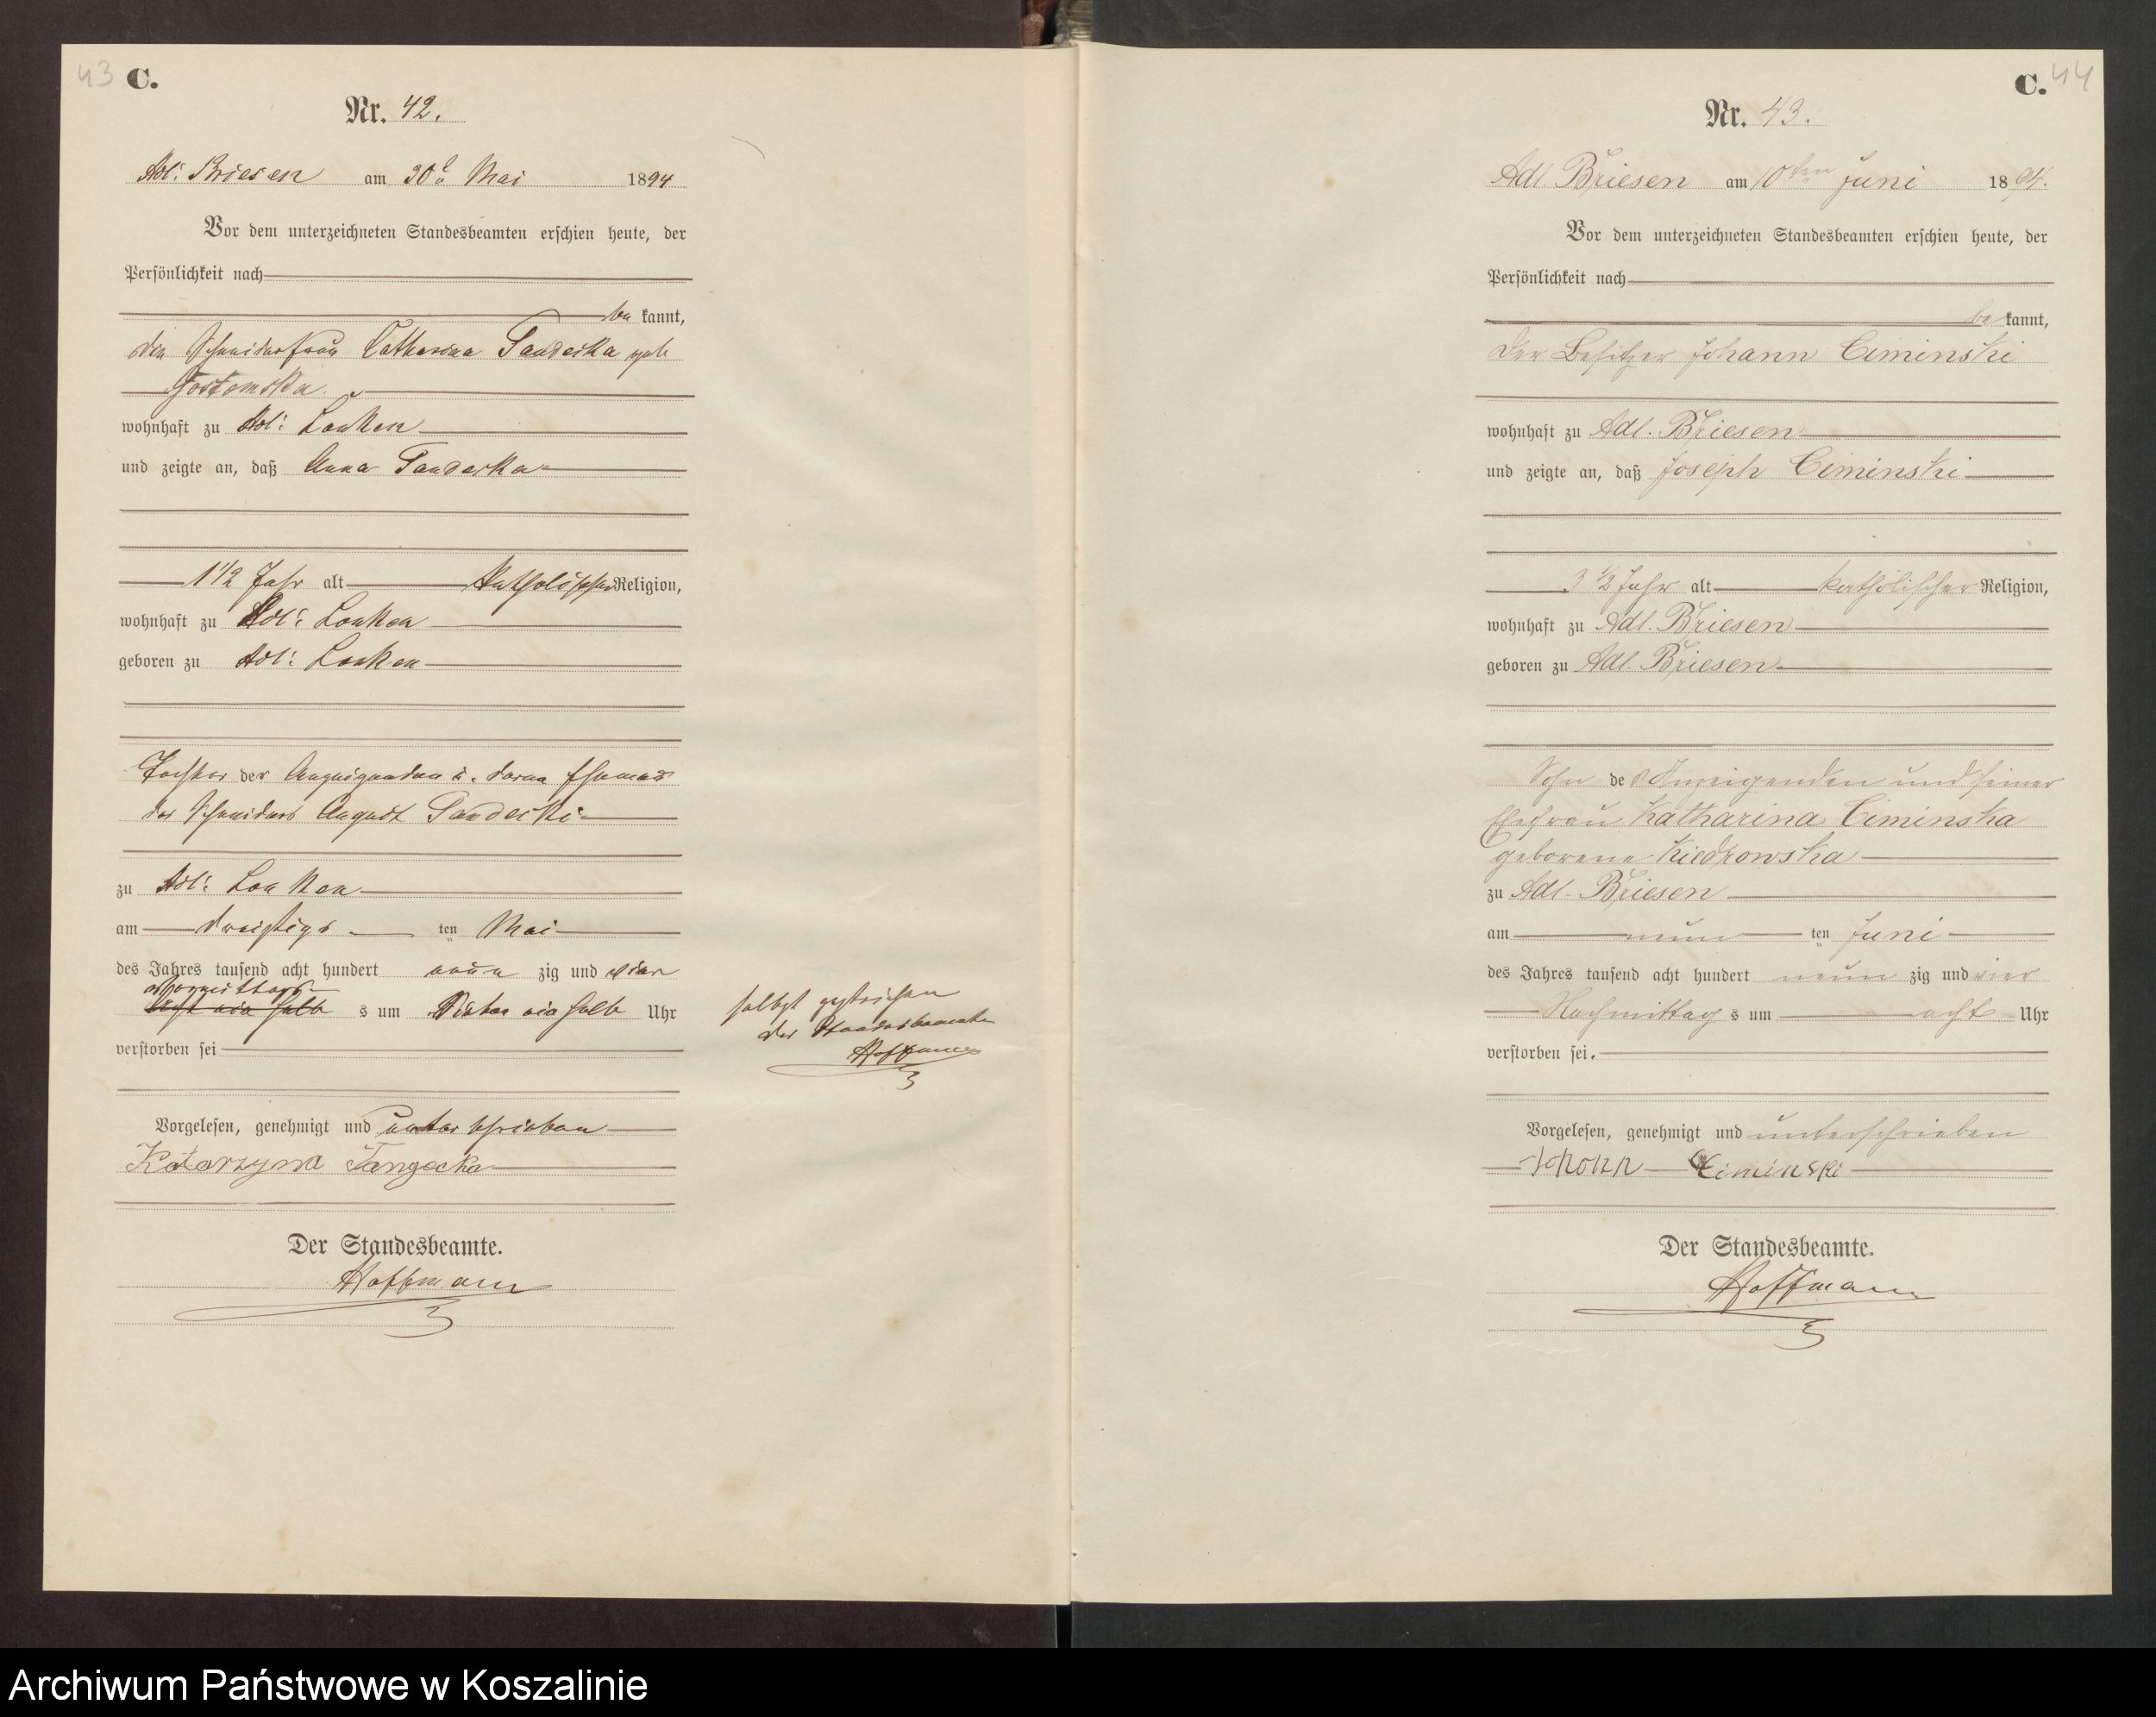 43 C.
Nr. 42.
Adl: Briesen am 30t. Mai 1894
Vor dem unterzeichneten Standesbeamten erschien heute, der
Persönlichkeit nach
be kannt,
die Schneiderfrau Catharina Tandecka geb
Gostomska.
wohnhaft zu Adl: Lonken
und zeigte an, daß Anna Tandecka
1 1/2 Jahr alt katholischer Religion,
wohnhaft zu Adl: Lonken
geboren zu Adl: Lonken
Tochter der Anzeigenden u. deren Ehemann
des Schneiders August Tandecki
zu Adl: Lonken
am dreißigs ten Mai
des Jahres tausend acht hundert neun zig und vier
Vormittags
ein halb s um ein halb Uhr
verstorben sei
selbst gestrichen
der Standesbeamte
Hoffmann
Vorgelesen, genehmigt und unterschrieben
Katarzyna
Der Standesbeamte.
Hoffmann
C. 44
Nr. 43.
Adl. Briesen am 10ten Juni 1894.
Vor dem unterzeichneten Standesbeamten erschien heute, der
Persönlichkeit nach
be kannt,
der Besitzer Johann Ciminski
wohnhaft zu Adl. Briesen
und zeigte an, daß Joseph Ciminski
3 1/2 Jahr alt katholischer Religion,
wohnhaft zu Adl. Briesen
geboren zu Adl. Briesen
Sohn des Anzeigenden und seiner
Ehefrau Katharina Ciminska
geborene Kiedrowska
zu Adl. Briesen
am neun ten Juni
des Jahres tausend acht hundert neun zig und vier
Nachmittag s um acht Uhr
verstorben sei.
Vorgelesen, genehmigt und unterschrieben
Ciminski
Der Standesbeamte.
Hoffmann
Archiwum Państwowe w Koszalinie